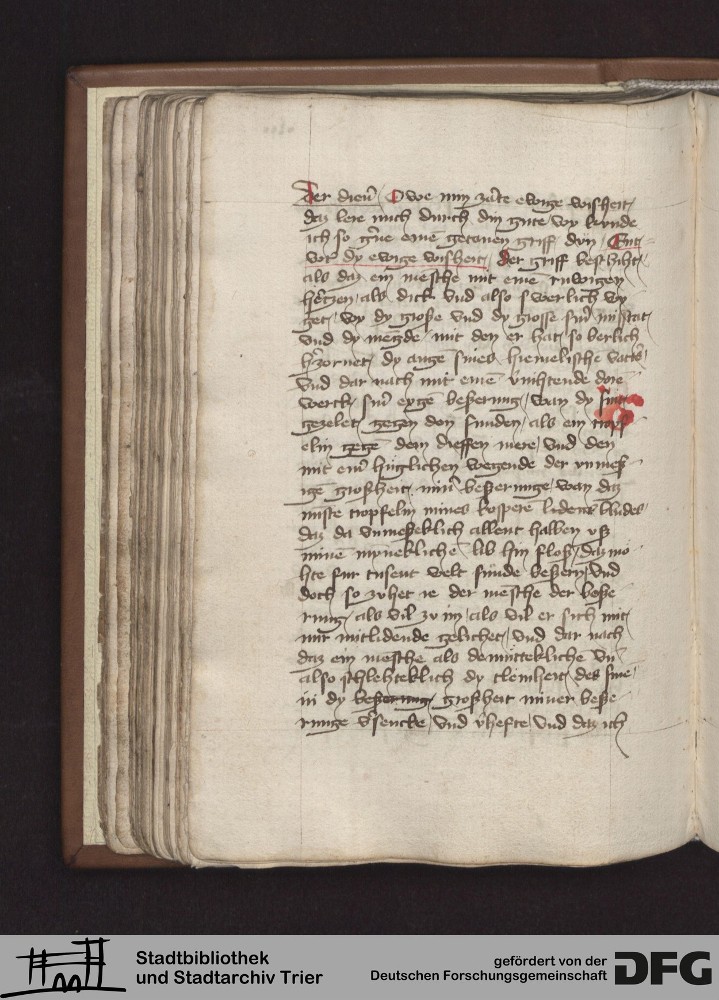 Der dien̄ Owe min zarte ewige wisheit
daz lere mich durch din gute wy kunde
ich so gn̄e einē getanen griff dūn Ent=
wort dy ewige wisheit Der griff beschiht
als daz ein mēsche mit einē ruwigen
hertzen als dick vnd also swerlich wy
get wy dy große vnd dy grosse sin̄ missetat
vnd dy mengde mit den er hat so berlich
herzornet dy auge sines hiemelische vatt̄s
vnd dar nach mit einē v̄nihtende dyͤe
werck sin̄ eygē beßerung wan dy sint
gezelet gegen den sunden als ein tropf
elin gegē dem dieffen mere vnd den
mit ein̄ huglichen wegende der vnmeß
igē großheit min̄ beßerunge wan daz
minste tropfelin mines kospere bludes
daz da vnmeßeklich allent halben vß
minē mynnekliche lib hin floß daz mo
hte fur tusent welt sunde beßern vnd
doch so zuhet ie der mēsche der beße
rung als vil zu im als vil er sich mit
mir mitlidende gelichet vnd dar nach
daz ein mēsche als demuttekliche vn̄
also schlehteklich dy cleinheit des sine
in dy beßerung großheit miner beße
runge v̄sencke vnd v̄hefte vnd daz ich
Stadtbibliothek
und Stadtarchiv Trier
gefördert von der
Deutschen Forschungsgemeinschaft
DFG